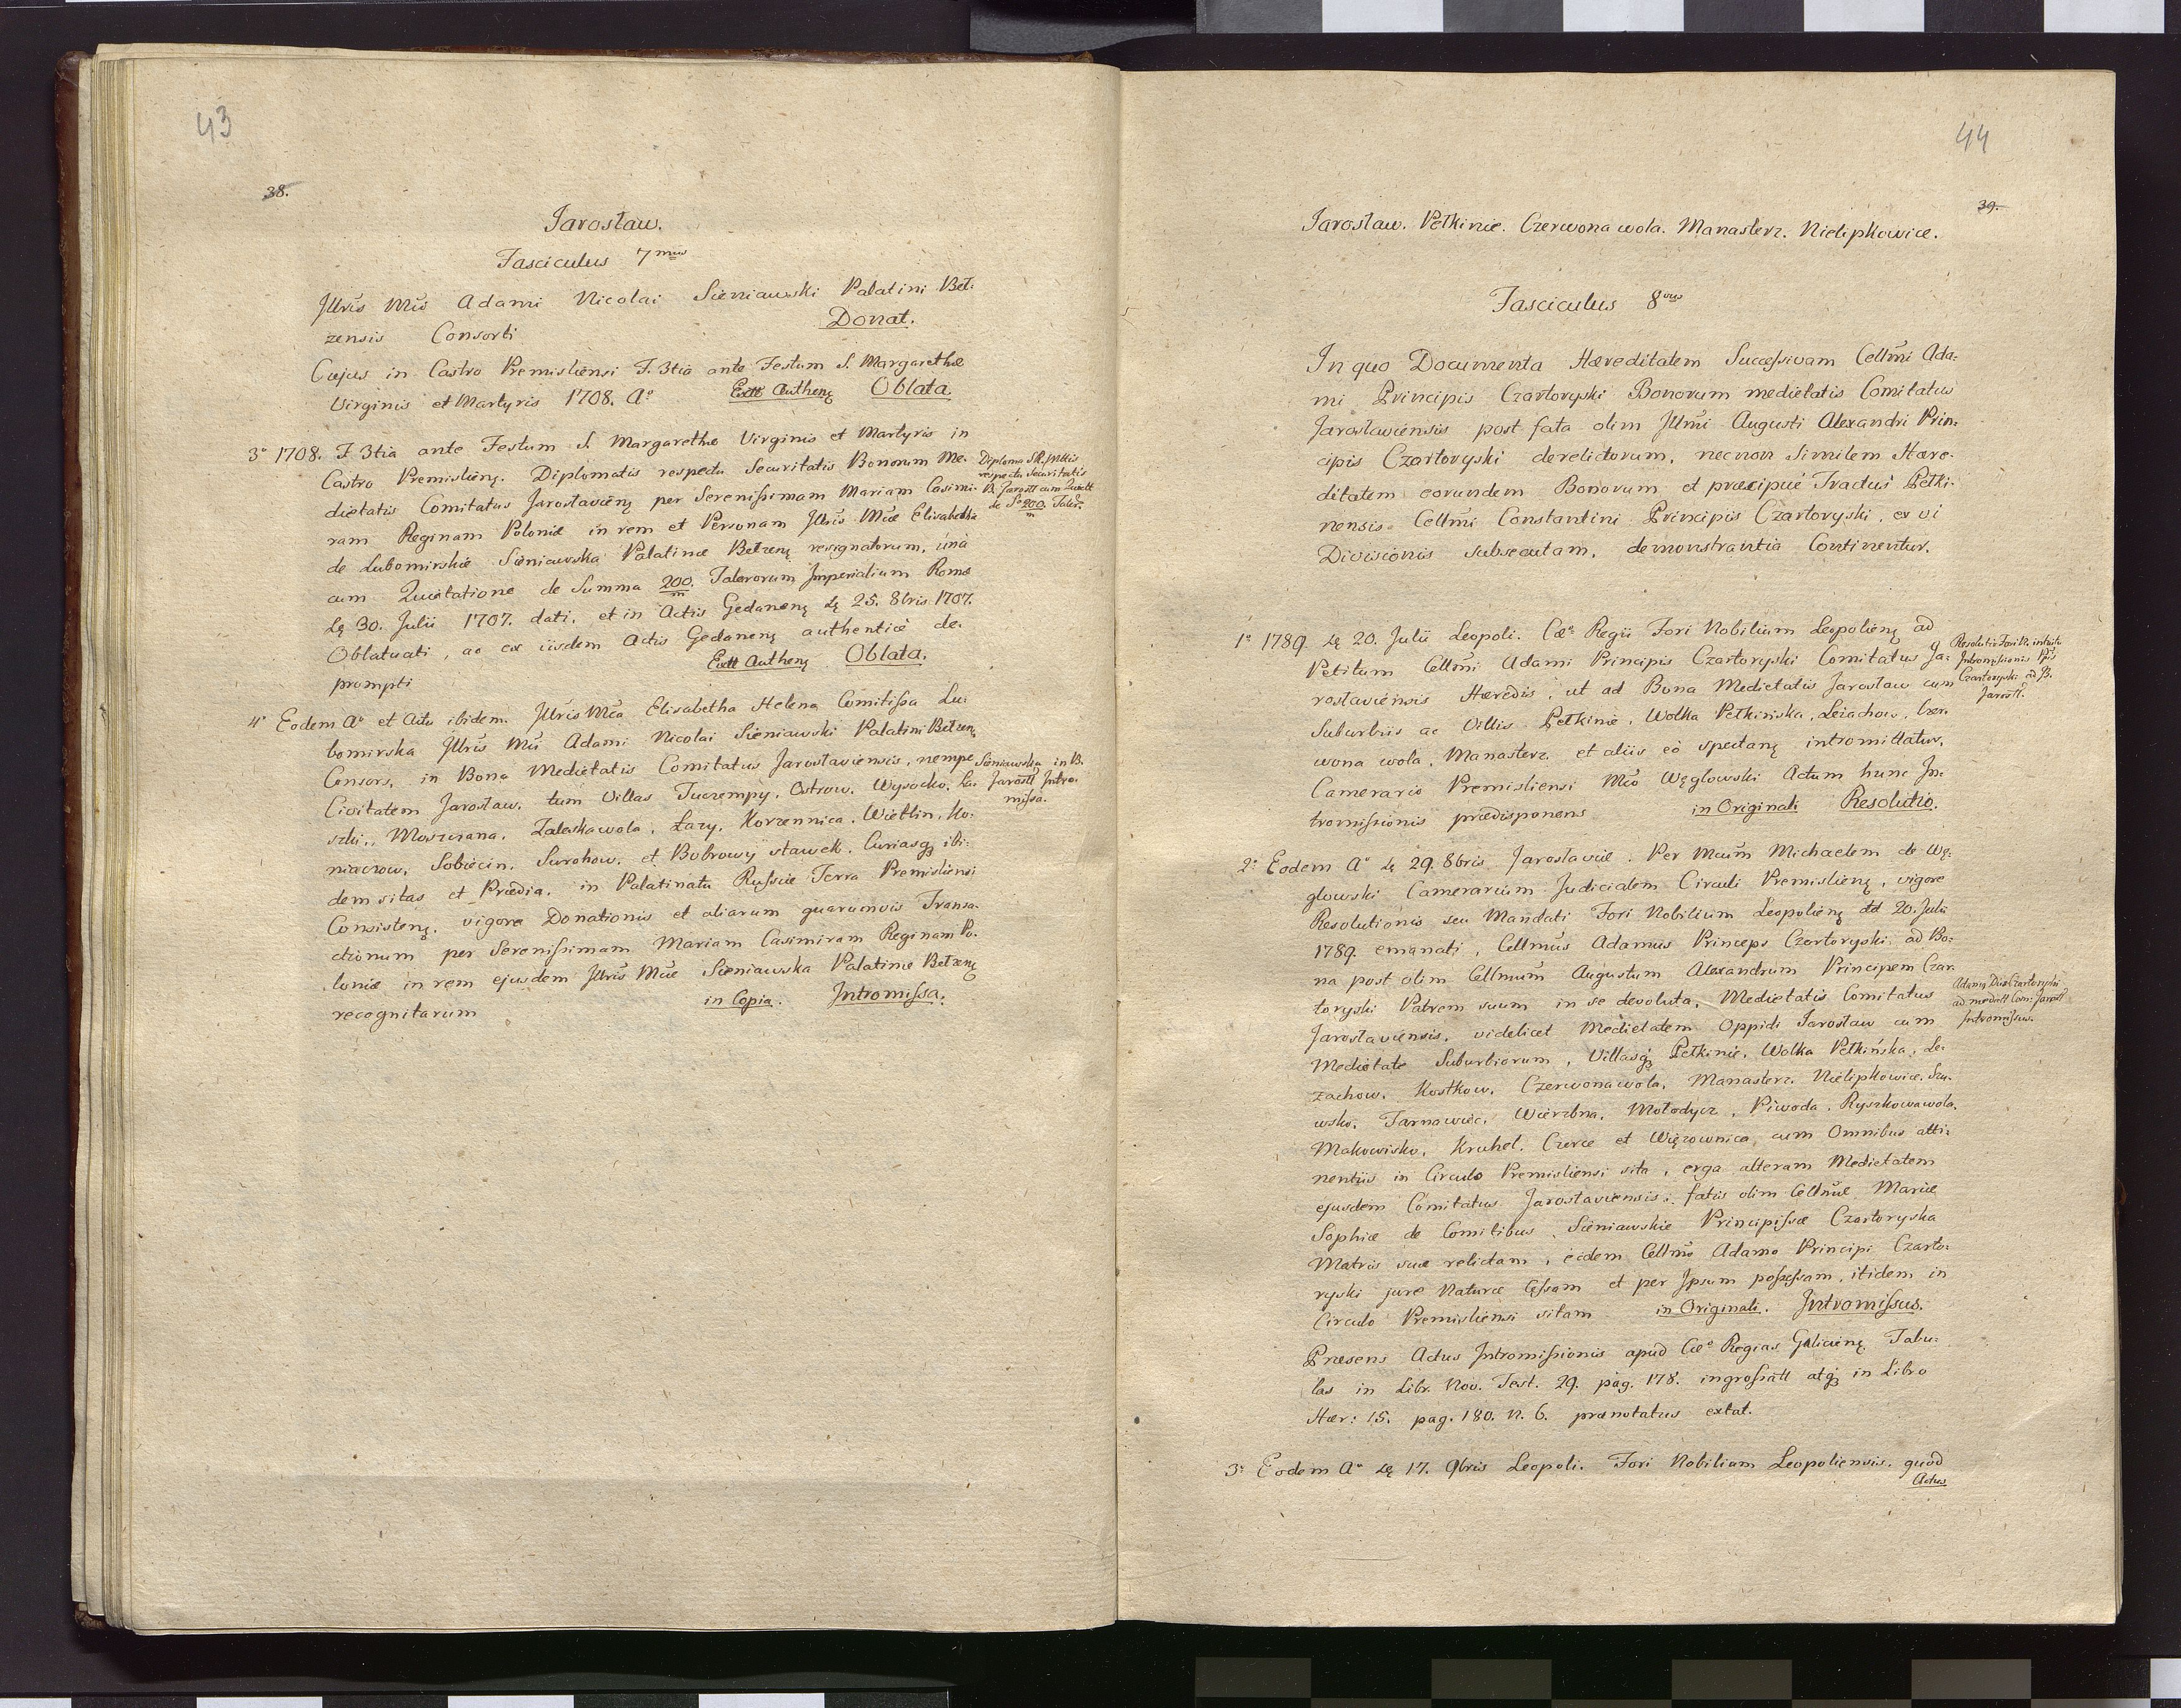 43
38.
Jarosław.
Fasciculus 7mus
Jllris Mis Adami Nicolai Sieniawski Palatini Beł:
zensis Consorti Donat.
Cujus in Castro Premisliensi F. 3tia ante Festum S. Margarethæ
Virginis et Martyris 1708. Aº Extt Authenq Oblata.
3º 1708. F. 3tia ante Festum S. Margarethæ Virginis et Martyris in
Castro Premislienq. Diplomatis respectu Securitatis Bonorum Me-
dietatis Comitatus Jarosławienq per Serenissimam Mariam Casimi-
ram Reginam Poloniæ in rem et Personam Jllris Mæ Elisabethæ
de Lubomirskie Sieniawska Palatinæ Bełzenq resignatorum, unà
cum Quietatione de Summa 200/m. Talerorum Jmperialium Romæ
Dq 30. Julii 1707. dati, et in Actis Gedanenq Dq 25. 8bris 1707.
Oblatuati, ac ex iisdem Actis Gedanenq authenticè de-
prompti Extt Authenq Oblata.
Diploma SR. Mttis
respectu Securitatis
B. Jarosłł cum Quiett
de Sa 200/m Taler.
4º Eodem Aº et Actu ibidem. Jllris Mæa Elisabetha Helena Comitissa Lu-
bomirska Jllris Mii Adami Nicolai Sieniawski Palatini Bełzenq
Consors, in Bona Medietatis Comitatus Jarosławiensis, nempe
Civitatem Jarosław, tum Villas Tuczempy, Ostrow, Wysocko, La-
szki, Moszczana, Zaleskawola, Łazy, Korzennica, Wietlin, Ko-
niaczow, Sobiecin, Surohow, et Bobrowy stawek, Curiasq ibi-
dem sitas et Prædia, in Palatinatu Russiæ Terra Premisliensi
Consistenq, vigore Donationis et aliarum quarumvis Transa-
ctionum per Serenissimam Mariam Casimiram Reginam Po-
loniæ in rem ejusdem Jllris Mæ Sieniawska Palatinæ Bełzenq
recognitarum in Copia. Jntromissa.
Sieniawska in B.
Jarosłł Jntro-
missa.
44
39.
Jarosław. Pełkinie. Czerwona wola. Manasterz. Nielipkowice.
Fasciculus 8vus
Jn quo Documenta Hæreditatem Successivam Cellmi Ada-
mi Principis Czartoryski Bonorum medietatis Comitatus
Jarosławiensis post fata olim Jllmi Augusti Alexandri Prin-
cipis Czartoryski derelictorum, necnon Similem Hære-
ditatem eorundem Bonorum et præcipuè Tractus Pełki-
nensis Cellmi Constantini Principis Czartoryski, ex vi
Divisionis subsecutam, demonstrantia Continentur.
1º 1789. Dq 20. Julii Leopoli. Cæº Regii Fori Nobilium Leopolienq ad
Petitum Cellmi Adami Principis Czartoryski Comitatus Ja-
rosławiensis Hæredis, ut ad Bona Medietatis Jarosław cum
Suburbiis ac Villis Pełkinie, Wolka Pełkińska, Leżachow, Czer-
wona wola, Manasterz, et aliis eò spectanq intromittatur,
Camerario Premisliensi Mco Węglowski Actum hunc Jn-
tromissionis prædisponens in Originali Resolutio.
Resolutio Fori N. intuitu
Jntromissionis Ppis
Czartoryski ad B.
Jarosłł.
2º Eodem Aº Dq 29. 8bris Jarosławiæ. Per Mcum Michaelem de Wę-
glowski Camerarium Judicialem Circuli Premislienq, vigore
Resolutionis seu Mandati Fori Nobilium Leopolienq dd 20. Julii
1789. emanati, Cellmus Adamus Princeps Czartoryski ad Bo-
na post olim Cellmum Augustum Alexandrum Principem Czar-
toryski Patrem suum in se devoluta, Medietatis Comitatus
Jarosławiensis, videlicet Medietatem Oppidi Jarosław cum
Medietate Suburbiorum, Villasq Pełkinie, Wolka Pełkińska, Le-
zachow, Kostkow, Czerwonawola, Manasterz, Nielipkowice, Szu-
wsko, Tarnawiec, Wierzbna, Mołodycz, Piwoda, Ryszkowawola,
Makowisko, Kruhel, Czerce et Więzownica, cum Omnibus atti-
nentiis in Circulo Premisliensi sita, erga alteram Medietatem
ejusdem Comitatus Jarosławiensis, fatis olim Cellmæ Mariæ
Sophiæ de Comitibus Sieniawskie Principissæ Czartoryska
Matris suæ relictam, eidem Cellmo Adamo Principi Czarto-
ryski jure Naturæ Cessam et per Jpsum possessam, itidem in
Circulo Premisliensi sitam in Originali. Jntromissus.
Adamus Dux Czartoryski
ad medtt Com: Jarosłł
Jntromissus.
Præsens Actus Jntromissionis apud Cæº Regias Galicienq Tabu-
las in Libr. Nov. Test. 29. pag. 178. ingrossatt atq in Libro
Hær: 15. pag. 180. N. 6. prænotatus extat.
3º Eodem Aº Dq 17. 9bris Leopoli. Fori Nobilium Leopoliensis, quod
Actus